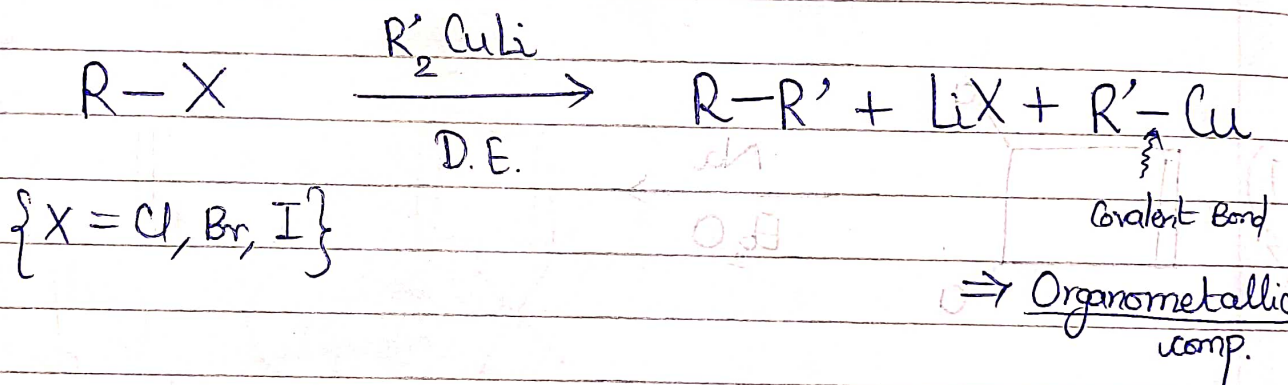 R'₂ CuLi
R – X ⟶ R – R' + LiX + R' – Cu
D.E.
{X = Cl, Br, I}
Covalent Bond
⇒ Organometallic
comp.